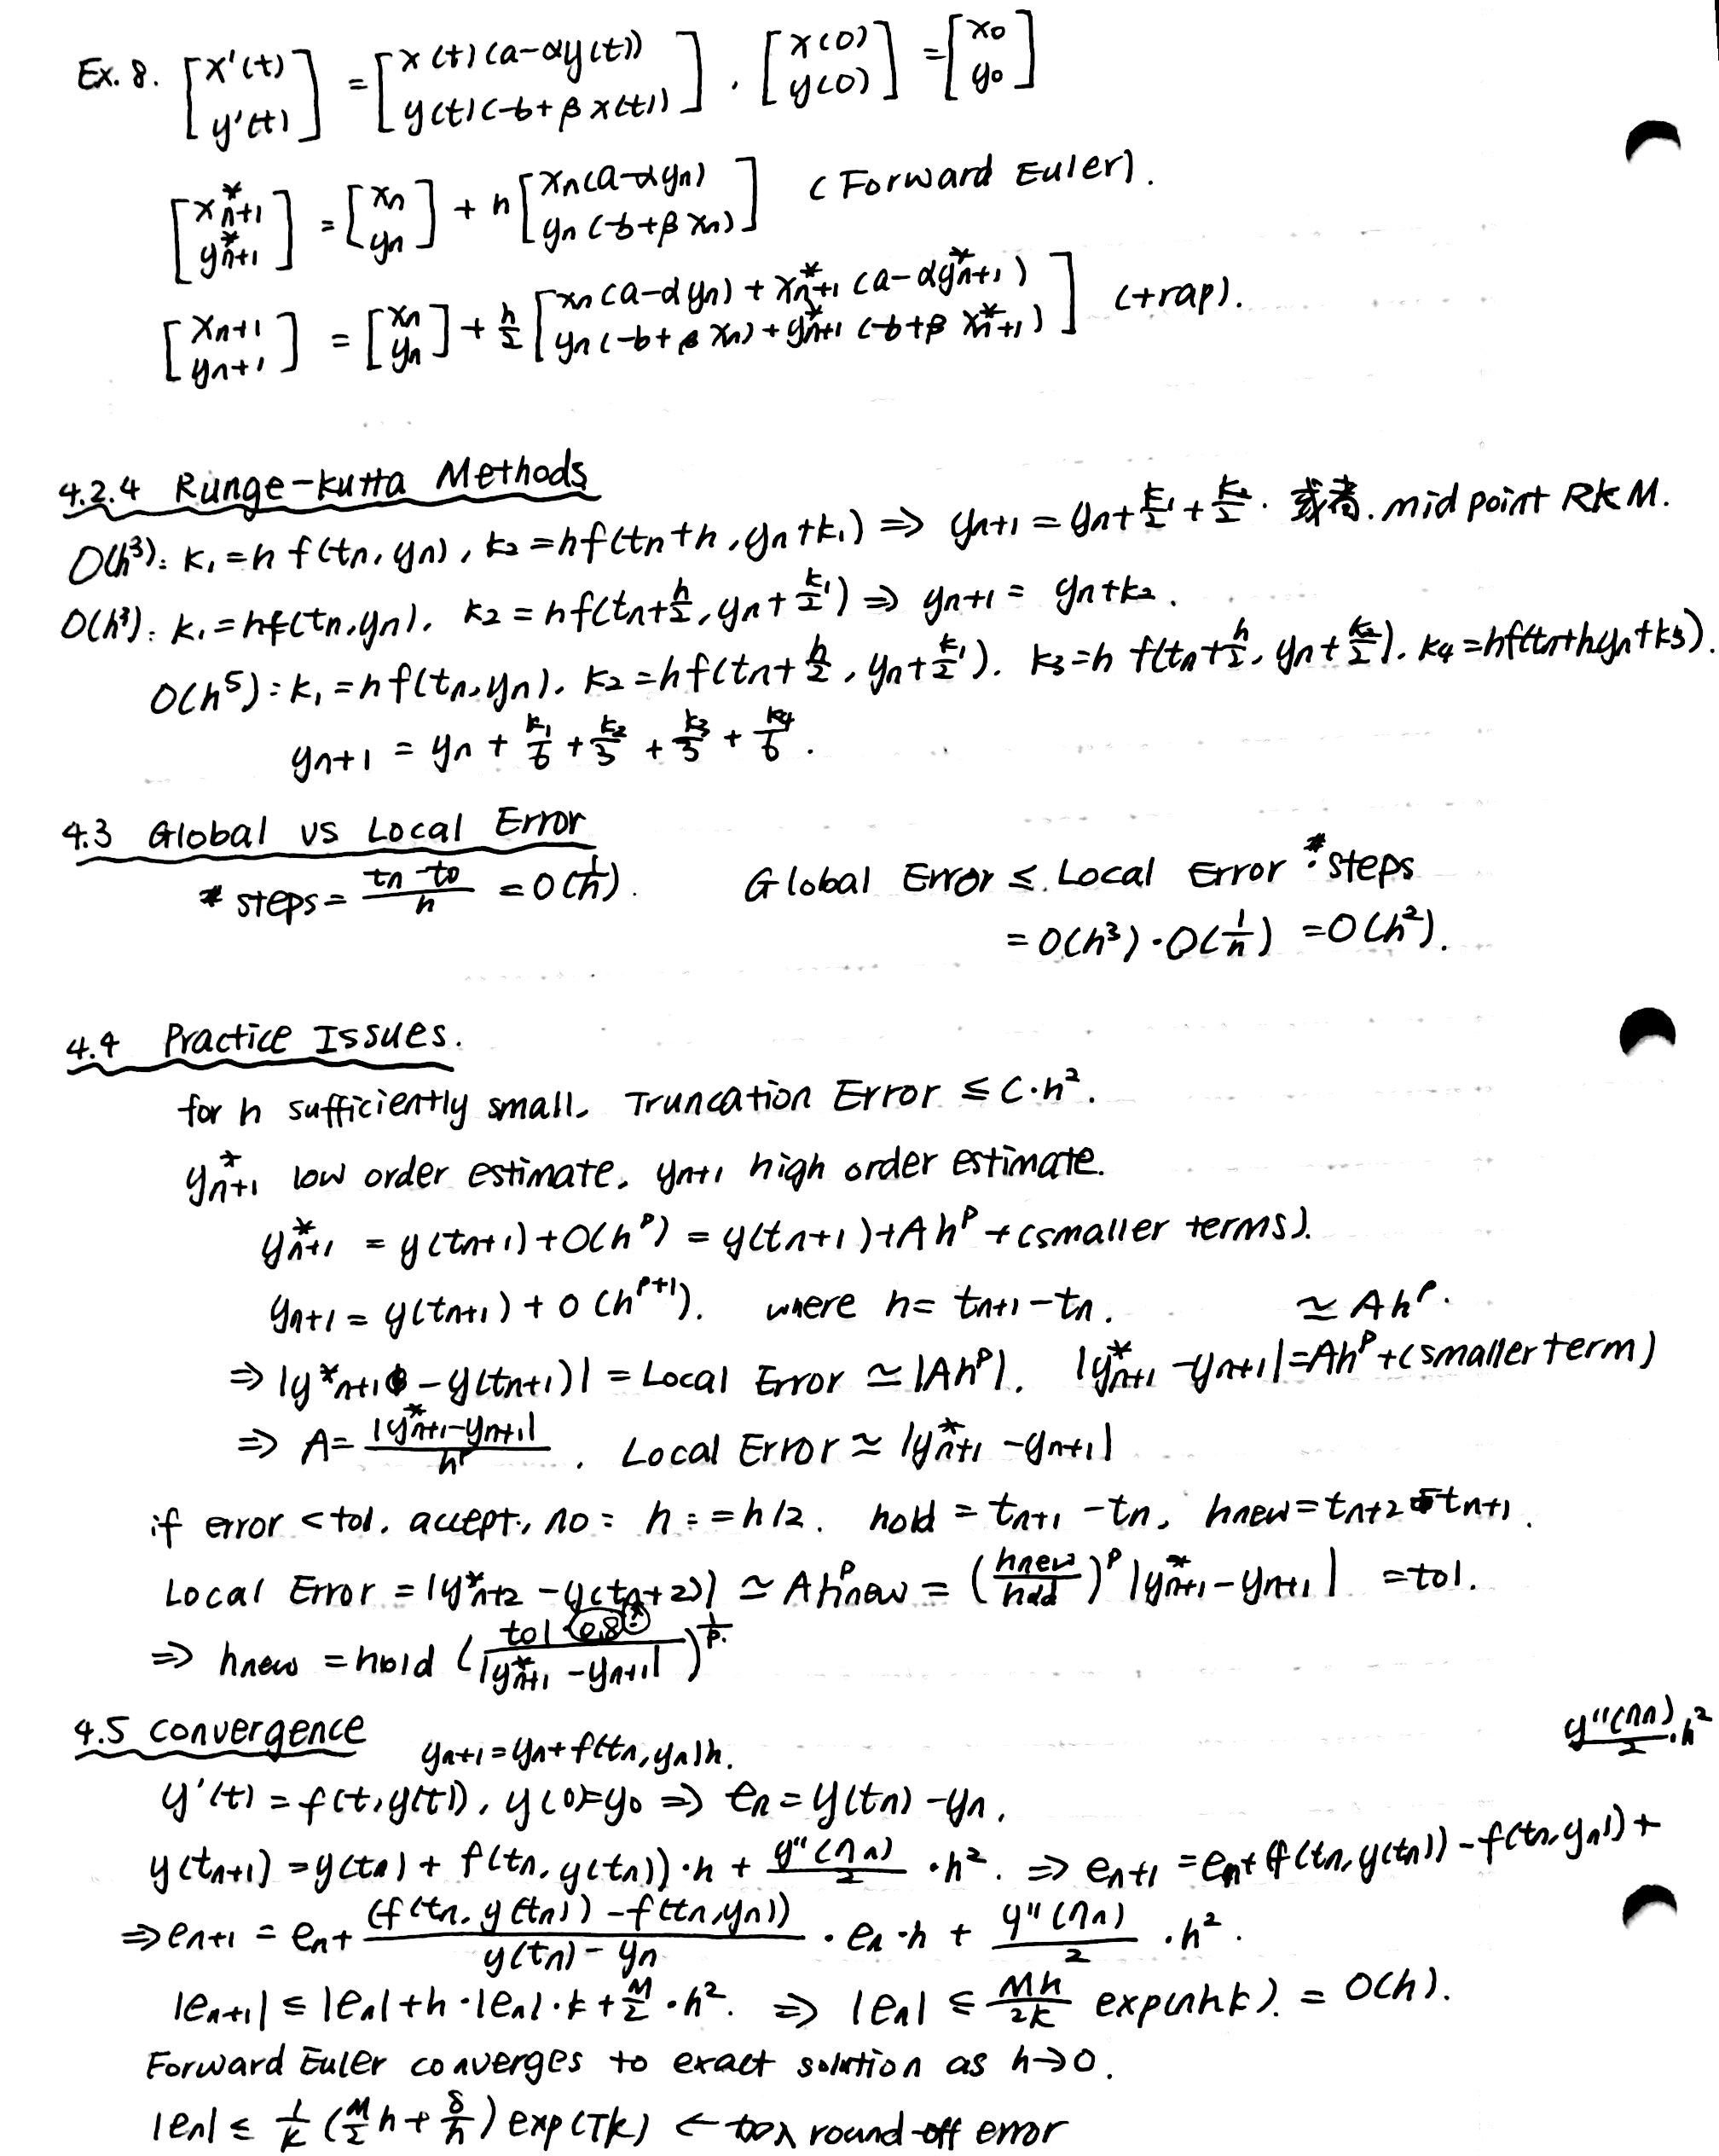 Ex. 8. [x'(t) y'(t)] = [x(t)(a-αy(t)) y(t)(-b+βx(t))] . [x(0) y(0)] = [x0 y0]
[x*n+1 y*n+1] = [xn yn] + h [xn(a-αyn) yn(-b+βxn)] (Forward Euler).
[xn+1 yn+1] = [xn yn] + h/2 [xn(a-αyn) + x*n+1(a-αy*n+1) yn(-b+βxn) + y*n+1(-b+βx*n+1)] (trap).
4.2.4 Runge-kutta Methods
O(h³): k1 = h f(tn, yn), k2 = hf(tn+h, yn+k1) ⇒ yn+1 = yn + k1/2 + k2/2 . 或者. mid point RKM.
O(h³): k1 = hf(tn,yn). k2 = hf(tn+h/2, yn+k1/2) ⇒ yn+1 = yn+k2.
O(h⁵): k1 = hf(tn,yn). k2 = hf(tn+h/2, yn+k1/2). k3 = h f(tn+h/2, yn+k2/2). k4 = hf(tn+h,yn+k3).
yn+1 = yn + k1/6 + k2/3 + k3/3 + k4/6 .
4.3 Global vs Local Error
# steps = (tn-t0)/h = O(1/h). Global Error ≤ Local Error · # steps
= O(h³)·O(1/h) = O(h²).
4.4 Practice Issues.
for h sufficiently small. Truncation Error ≤ C·h².
y*n+1 low order estimate, yn+1 high order estimate.
y*n+1 = y(tn+1)+O(h^p) = y(tn+1)+Ah^p+(smaller terms).
yn+1 = y(tn+1)+O(h^p+1). where h = tn+1-tn. ≃ Ah^p.
⇒ |y*n+1 - y(tn+1)| = Local Error ≃ |Ah^p|. |y*n+1 - yn+1| = Ah^p+(smaller term)
⇒ A = |y*n+1-yn+1|/h^p . Local Error ≃ |y*n+1 - yn+1|
if error < tol. accept, no: h := h/2. hold = tn+1 - tn, hnew = tn+2 - tn+1.
Local Error = |y*n+2 - y(tn+2)| ≃ Ah^p new = (hnew/hold)^p |y*n+1 - yn+1| = tol.
⇒ hnew = hold (tol·0.8/|y*n+1 - yn+1|)^1/p.
4.5 Convergence yn+1 = yn + f(tn,yn)h.
y'(t) = f(t,y(t)), y(0)=y0 ⇒ en = y(tn) - yn.
y(tn+1) = y(tn) + f(tn, y(tn))·h + y''(ηn)/2 ·h². ⇒ en+1 = en+(f(tn,y(tn)) - f(tn,yn)) + y''(ηn)/2 ·h²
⇒ en+1 = en + (f(tn, y(tn)) - f(tn,yn))/(y(tn) - yn) · en·h + y''(ηn)/2 ·h².
|en+1| ≤ |en| + h·|en|·k + M/2·h². ⇒ |en| ≤ Mh/2k exp(nhk). = O(h).
Forward Euler converges to exact solution as h→0.
|en| ≤ 1/k (M/2 h + δ/h) exp(Tk) ← round-off error